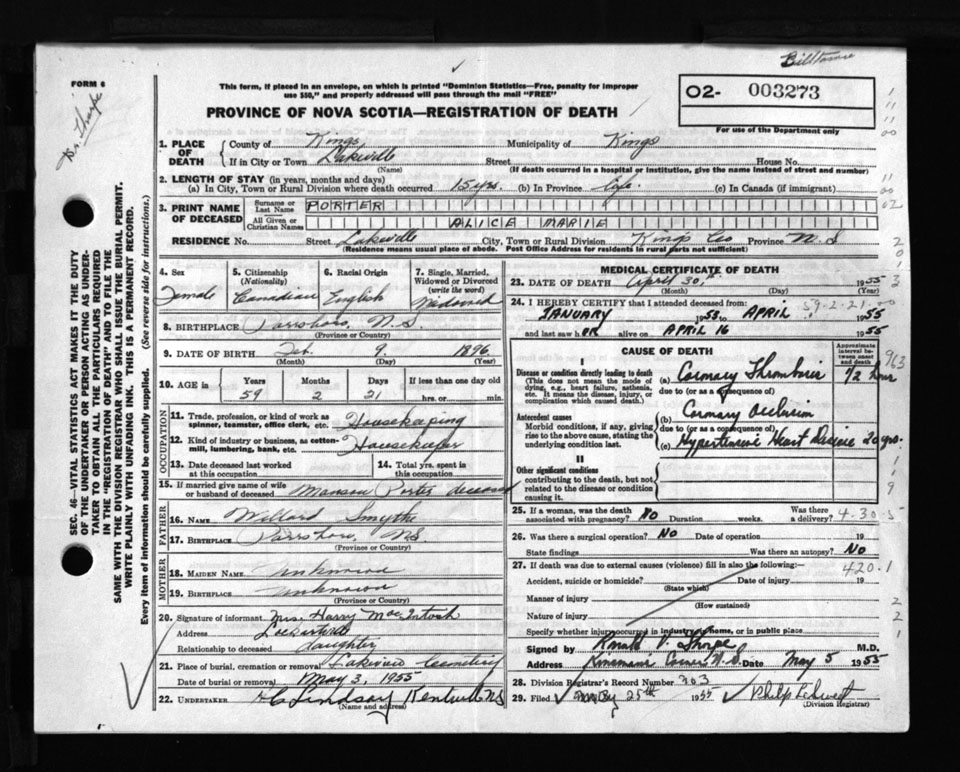 Billtown
FORM 6
Dr. Thorpe
This form, if placed in an envelope, on which is printed "Dominion Statistics—Free, penalty for improper
use $30," and properly addressed will pass through the mail "FREE"
PROVINCE OF NOVA SCOTIA—REGISTRATION OF DEATH
02- 003273
For use of the Department only
SEC. 46—VITAL STATISTICS ACT MAKES IT THE DUTY
OF THE UNDERTAKER OR PERSON ACTING AS UNDER-
TAKER TO OBTAIN ALL THE PARTICULARS REQUIRED
IN THE "REGISTRATION OF DEATH" AND TO FILE THE
SAME WITH THE DIVISION REGISTRAR WHO SHALL ISSUE THE BURIAL PERMIT.
WRITE PLAINLY WITH UNFADING INK. THIS IS A PERMANENT RECORD.
Every item of information should be carefully supplied. (See reverse side for instructions.)
1. PLACE OF DEATH County of Kings Municipality of Kings
If in City or Town Lakeville Street House No.
(Name) (If death occurred in a hospital or institution, give the name instead of street and number)
2. LENGTH OF STAY (in years, months and days)
(a) In City, Town or Rural Division where death occurred 15 yrs. (b) In Province Life. (c) In Canada (if immigrant)
3. PRINT NAME OF DECEASED Surname or Last Name PORTER
All Given or Christian Names ALICE MARIE
RESIDENCE No. Street Lakeville City, Town or Rural Division Kings Co Province N.S
(Residence means usual place of abode. Post Office Address for residents in rural parts not sufficient)
4. Sex Female
5. Citizenship (Nationality) Canadian
6. Racial Origin English
7. Single, Married, Widowed or Divorced (write the word) Widowed
8. BIRTHPLACE Parrsboro, N.S.
(Province or Country)
9. DATE OF BIRTH Feb. 9 1896
(Month) (Day) (Year)
10. AGE in Years 59 Months 2 Days 21 If less than one day old hrs. or min.
OCCUPATION
11. Trade, profession, or kind of work as spinner, teamster, office clerk, etc. Housekeeping
12. Kind of industry or business, as cotton-mill, lumbering, bank, etc. Housekeeper
13. Date deceased last worked at this occupation
14. Total yrs. spent in this occupation
15. If married give name of wife or husband of deceased Manson Porter deceased
FATHER
16. NAME Willard Smythe
17. BIRTHPLACE Parrsboro, N.S.
(Province or Country)
MOTHER
18. MAIDEN NAME Unknown
19. BIRTHPLACE Unknown
(Province or Country)
20. Signature of informant Mrs. Harry MacIntosh
Address
Relationship to deceased daughter
21. Place of burial, cremation or removal Lakeview Cemetery
Date of burial or removal May 3, 1955
22. UNDERTAKER H C Lindsay Kentville N.S
(Name and address)
MEDICAL CERTIFICATE OF DEATH
23. DATE OF DEATH April 30, 1955
(Month) (Day) (Year)
24. I HEREBY CERTIFY that I attended deceased from:
JANUARY 1953 to APRIL 1955
59-2-21-00
and last saw h ER alive on APRIL 16 1955
CAUSE OF DEATH
Approximate interval between onset and death
I
Disease or condition directly leading to death
(This does not mean the mode of dying, e.g., heart failure, asthenia, etc. It means the disease, injury, or complication which caused death.)
(a) Coronary Thrombosis 1/2 hour
due to (or as a consequence of)
Antecedent causes
Morbid conditions, if any, giving rise to the above cause, stating the underlying condition last.
(b) Coronary Occlusion
due to (or as a consequence of)
(c) Hypertensive Heart Disease 20 yrs.
II
Other significant conditions
contributing to the death, but not related to the disease or condition causing it.
25. If a woman, was the death associated with pregnancy? No Duration weeks. Was there a delivery?
4-30-5
26. Was there a surgical operation? No Date of operation 19
State findings Was there an autopsy? No
27. If death was due to external causes (violence) fill in also the following:
420.1
Accident, suicide or homicide? Date of injury 19
(State which)
Manner of injury
(How sustained)
Nature of injury
Specify whether injury occurred in industry, home, or in public place
Signed by M.D.
Address Kinsman's Corner N.S. Date May 5 1955
28. Division Registrar's Record Number 703
29. Filed May 25th 1955
(Division Registrar)